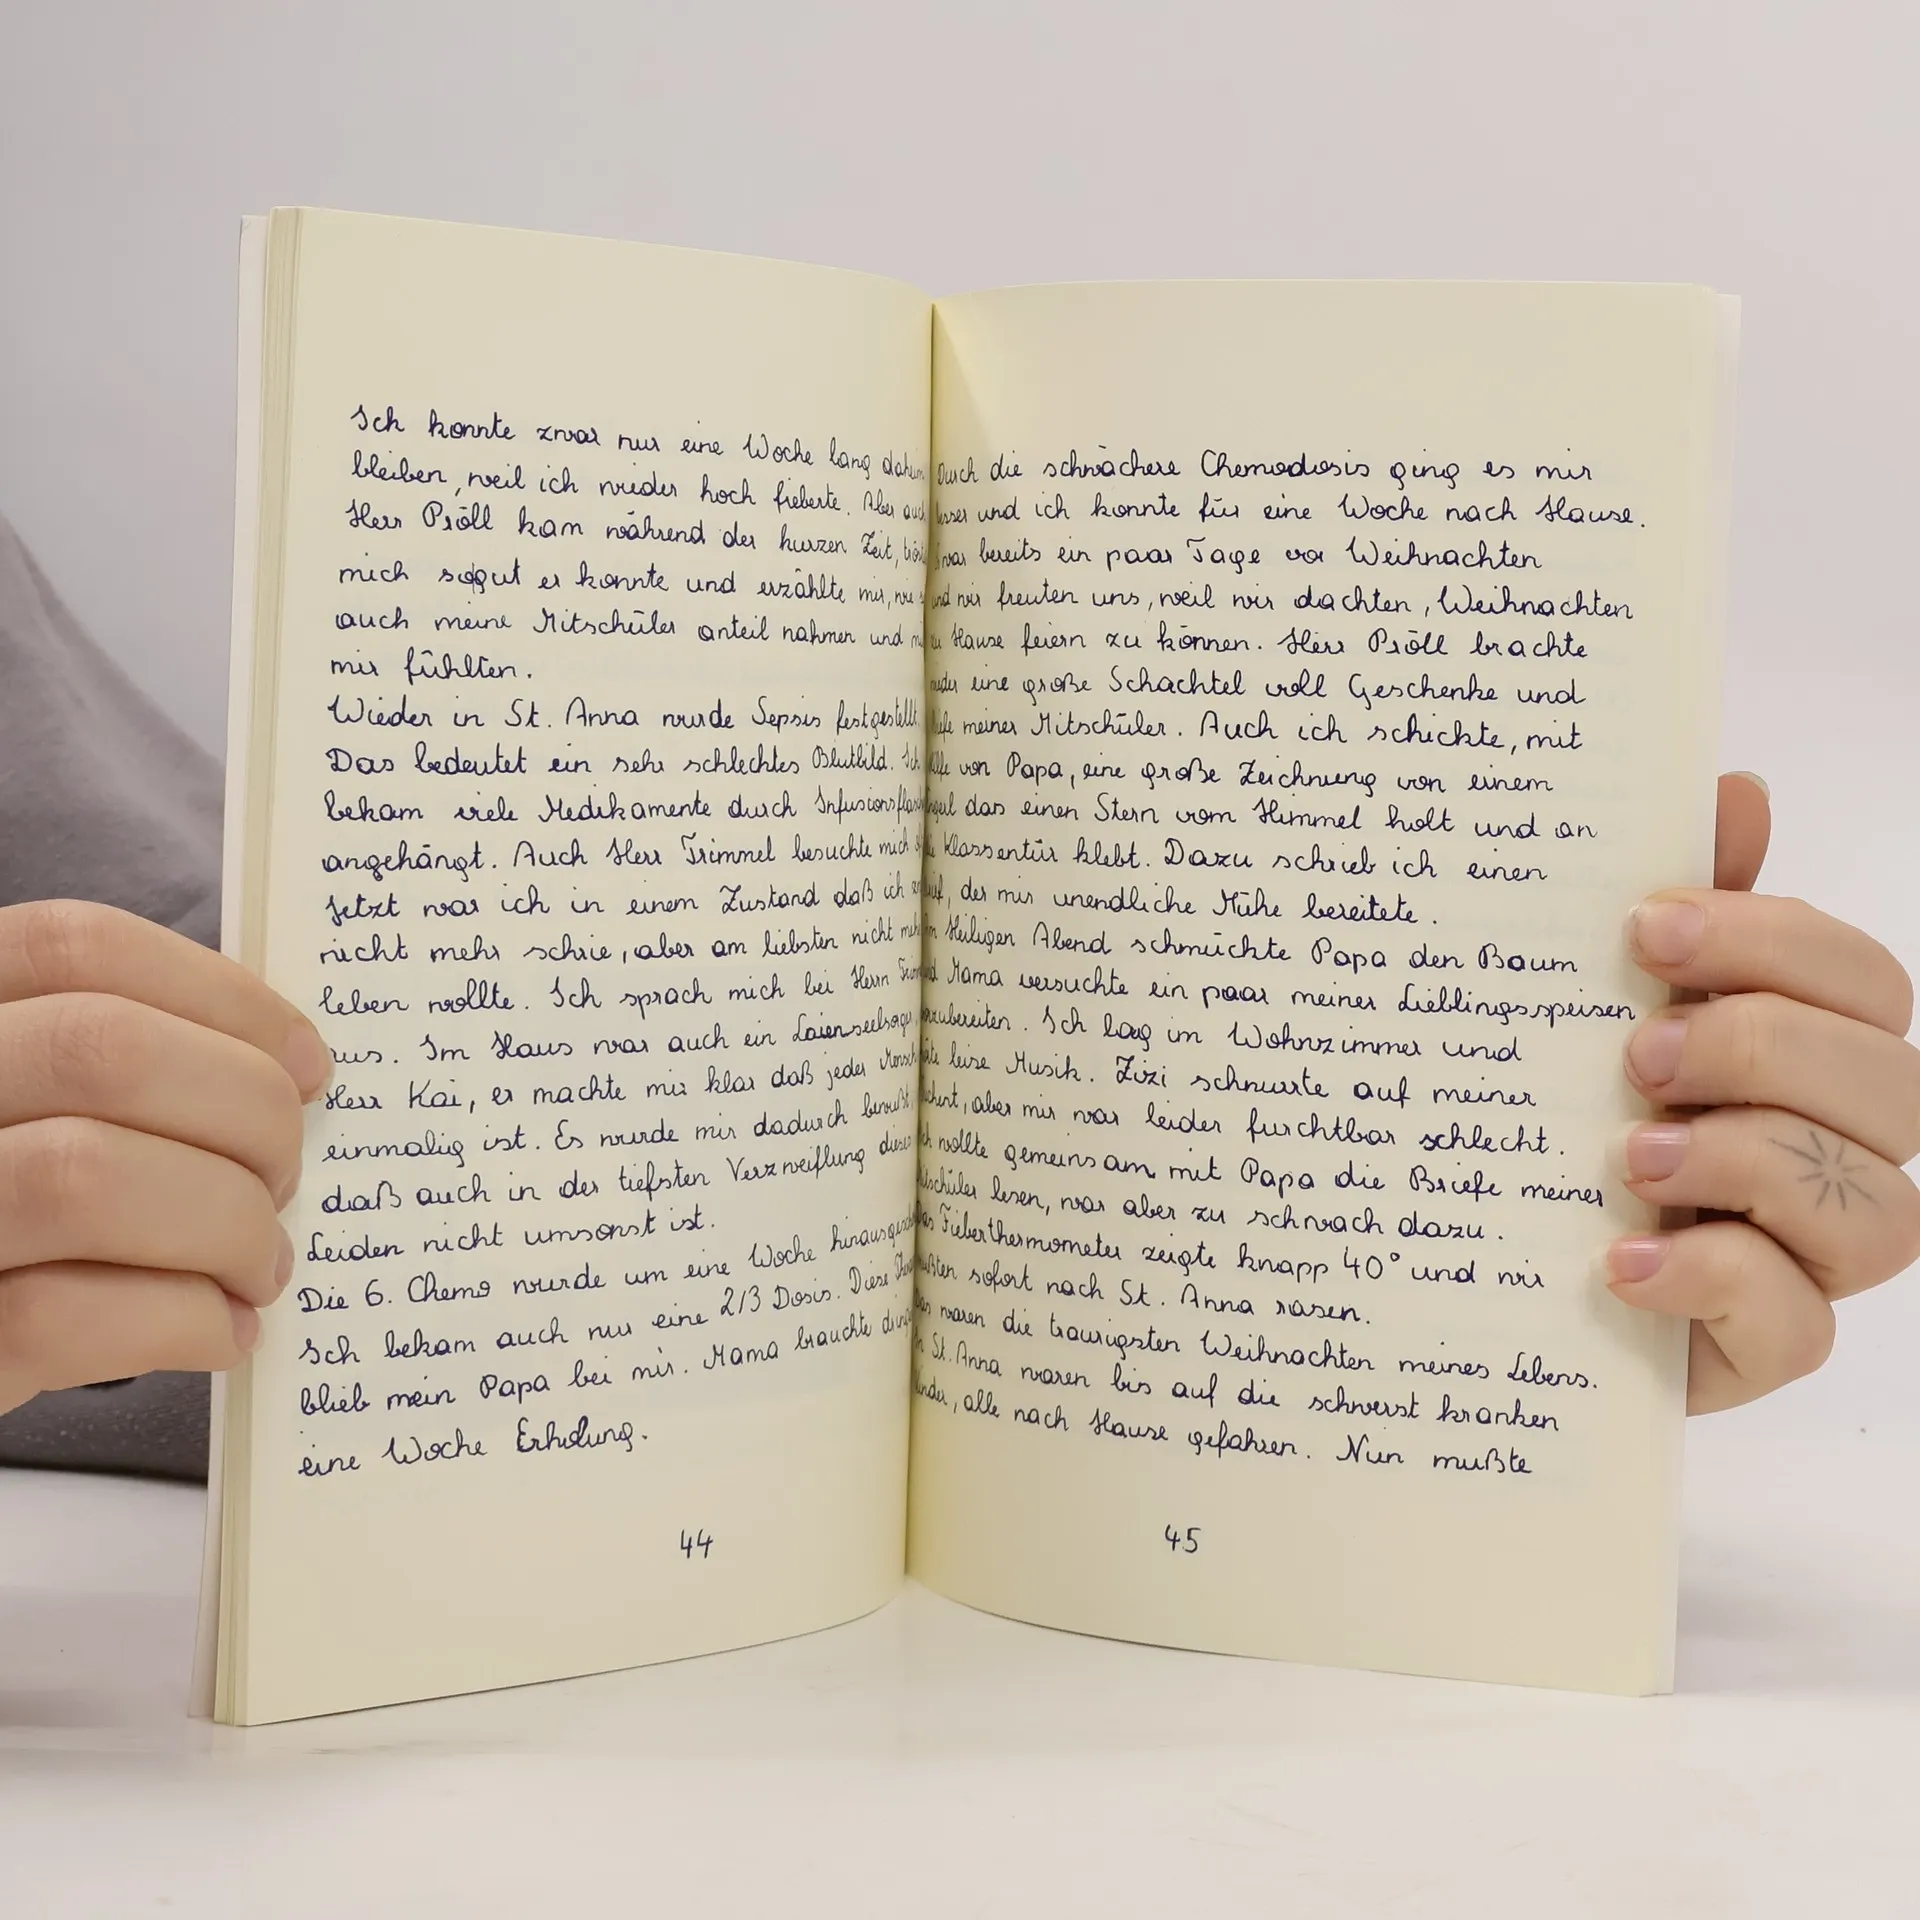 Ich konnte zwar nur eine Woche lang daheim
bleiben, weil ich wieder hoch fieberte. Aber auch
Herr Pröll kam während der kurzen Zeit,
mich sogut er konnte und erzählte mir, wie
auch meine Mitschüler anteil nahmen und
mir fühlten.
Wieder in St. Anna wurde Sepsis festgestellt.
Das bedeutet ein sehr schlechtes Blutbild. Ich
bekam viele Medikamente durch
angehängt. Auch Herr Trimmel besuchte mich
Jetzt war ich in einem Zustand daß ich
nicht mehr schrie, aber am liebsten nicht mehr
leben wollte. Ich sprach mich bei Herrn
aus. Im Haus war auch ein Laienseelsorger,
Herr Kai, er machte mir klar daß jeder Mensch
einmalig ist. Es wurde mir dadurch bewußt,
daß auch in der tiefsten Verzweiflung dieses
Leiden nicht umsonst ist.
Die 6. Chemo wurde um eine Woche
Ich bekam auch nur eine 2/3 Dosis. Diese
blieb mein Papa bei mir. Mama brauchte
eine Woche Erholung.
44
Durch die schwächere Chemodosis ging es mir
besser und ich konnte für eine Woche nach Hause.
bereits ein paar Tage vor Weihnachten
und wir freuten uns, weil wir dachten, Weihnachten
zu Hause feiern zu können. Herr Pröll brachte
wieder eine große Schachtel voll Geschenke und
Briefe meiner Mitschüler. Auch ich schickte, mit
Hilfe von Papa, eine große Zeichnung von einem
Engerl das einen Stern vom Himmel holt und an
die Klassentür klebt. Dazu schrieb ich einen
Brief, der mir unendliche Mühe bereitete.
Am Heiligen Abend schmückte Papa den Baum
und Mama versuchte ein paar meiner Lieblingsspeisen
vorzubereiten. Ich lag im Wohnzimmer und
leise Musik. Zizi schnurrte auf meiner
aber mir war leider furchtbar schlecht.
Ich wollte gemeinsam mit Papa die Briefe meiner
Mitschüler lesen, war aber zu schwach dazu.
Das Fieberthermometer zeigte knapp 40° und wir
mußten sofort nach St. Anna rasen.
Das waren die traurigsten Weihnachten meines Lebens.
In St. Anna waren bis auf die schwerst kranken
Kinder, alle nach Hause gefahren. Nun mußte
45